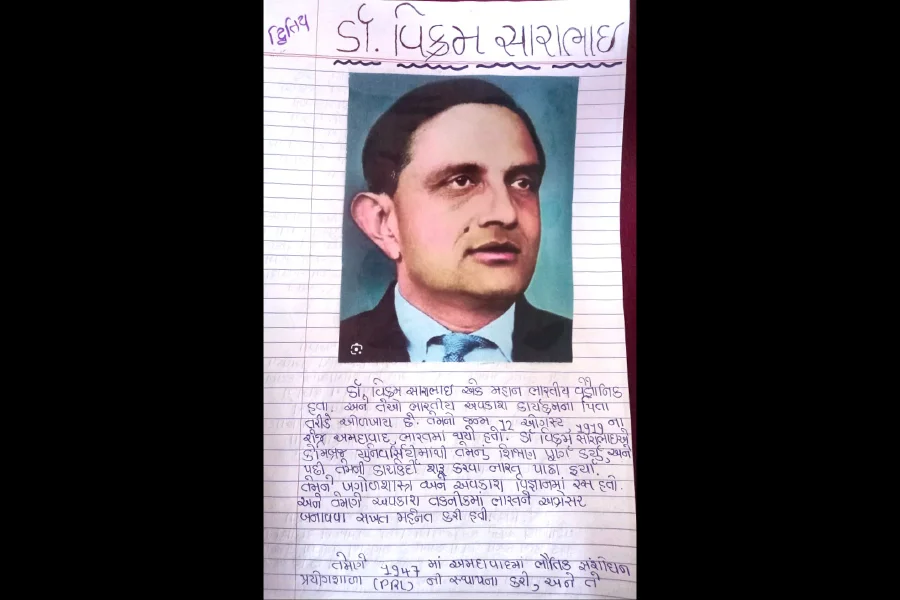 દ્વિતિય
ડૉ. વિક્રમ સારાભાઇ
ડૉ. વિક્રમ સારાભાઇ એક મહાન ભારતીય વૈજ્ઞાનિક
હતા. અને તેઓ ભારતીય અવકાશ કાર્યક્રમના પિતા
તરીકે ઓળખાય છે. તેમનો જન્મ 12 ઓગસ્ટ, 1919 ના
રોજ અમદાવાદ, ભારતમાં થયો હતો. ડૉ વિક્રમ સારાભાઇએ
કેમ્બ્રિજ યુનિવર્સિટીમાંથી તેમનું શિક્ષણ પૂર્ણ કર્યું, અને
પછી તેમની કારકિર્દી શરૂ કરવા ભારત પાછા ફર્યા.
તેમને ખગોળશાસ્ત્ર અને અવકાશ વિજ્ઞાનમાં રસ હતો.
અને તેમણે અવકાશ તકનીકમાં ભારતને અગ્રેસર
બનાવવા સખત મહેનત કરી હતી.
તેમણે 1947 માં અમદાવાદમાં ભૌતિક સંશોધન
પ્રયોગશાળા (PRL) ની સ્થાપના કરી, અને તે